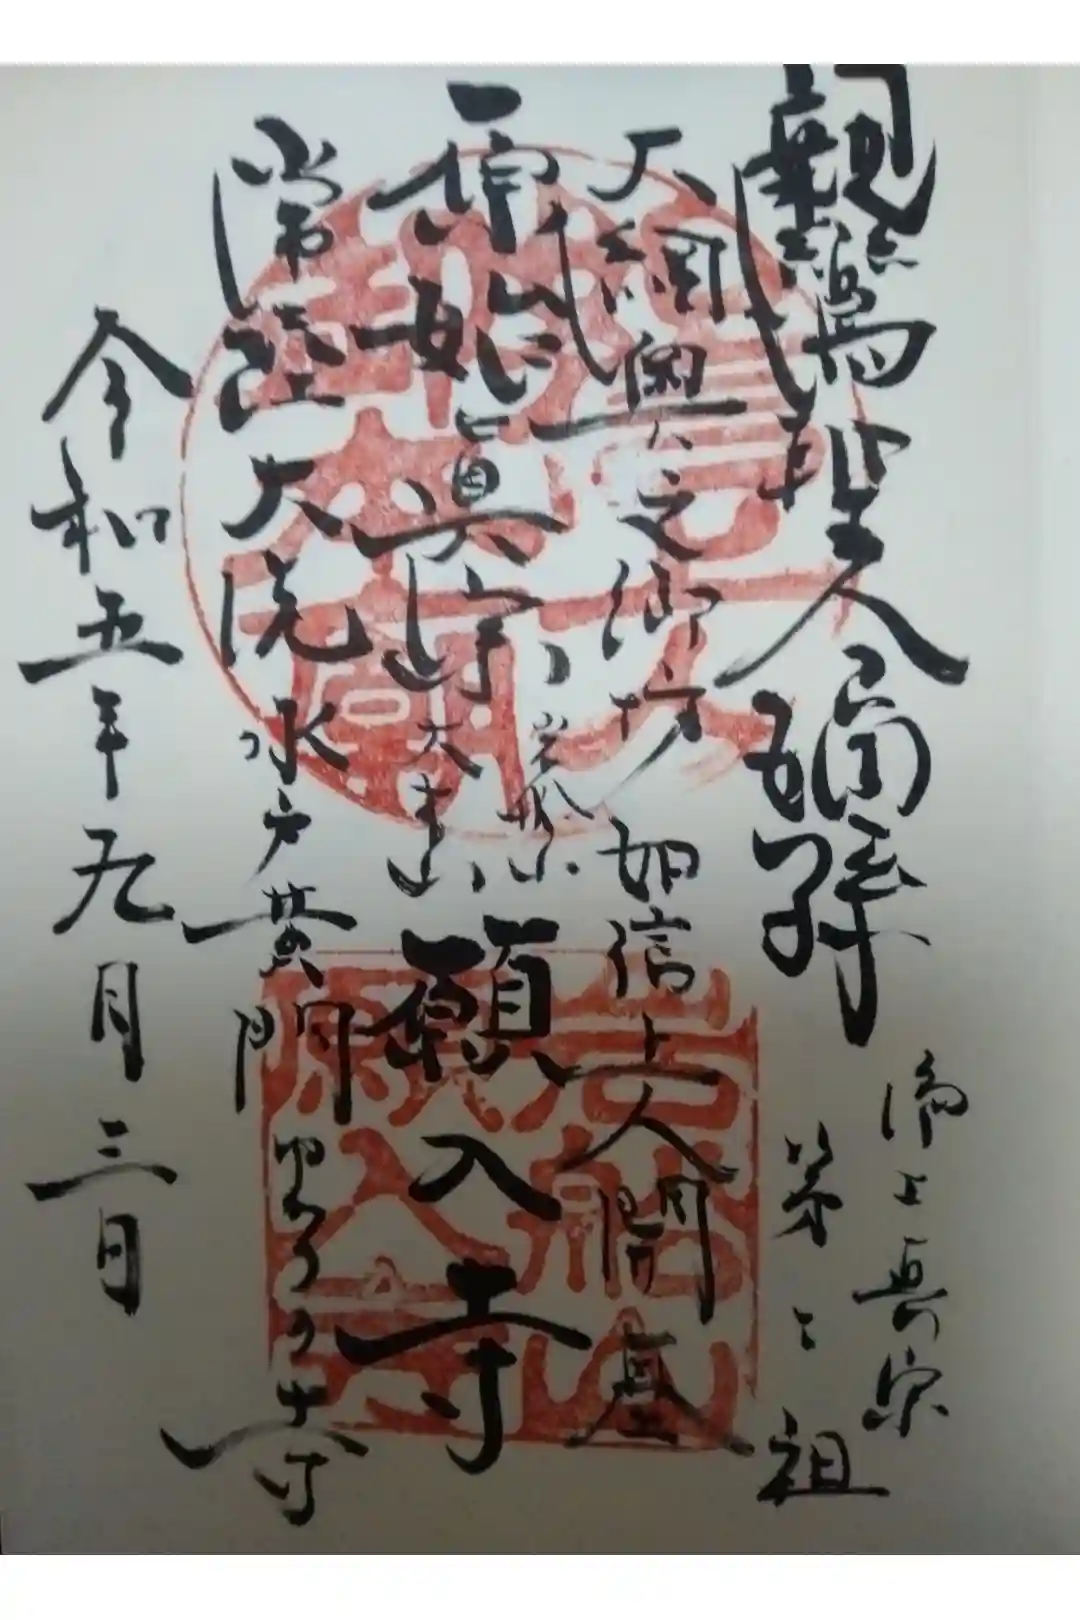 親鸞聖人御孫
浄土真宗
第二祖
大網奥之御坊 如信上人開基
原始真宗 大本山 願入寺
岩船山
常陸大洗 水戸黄門 ゆかり寺
令和五年九月三日